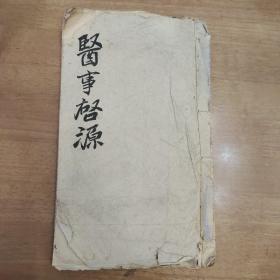 醫事啓源